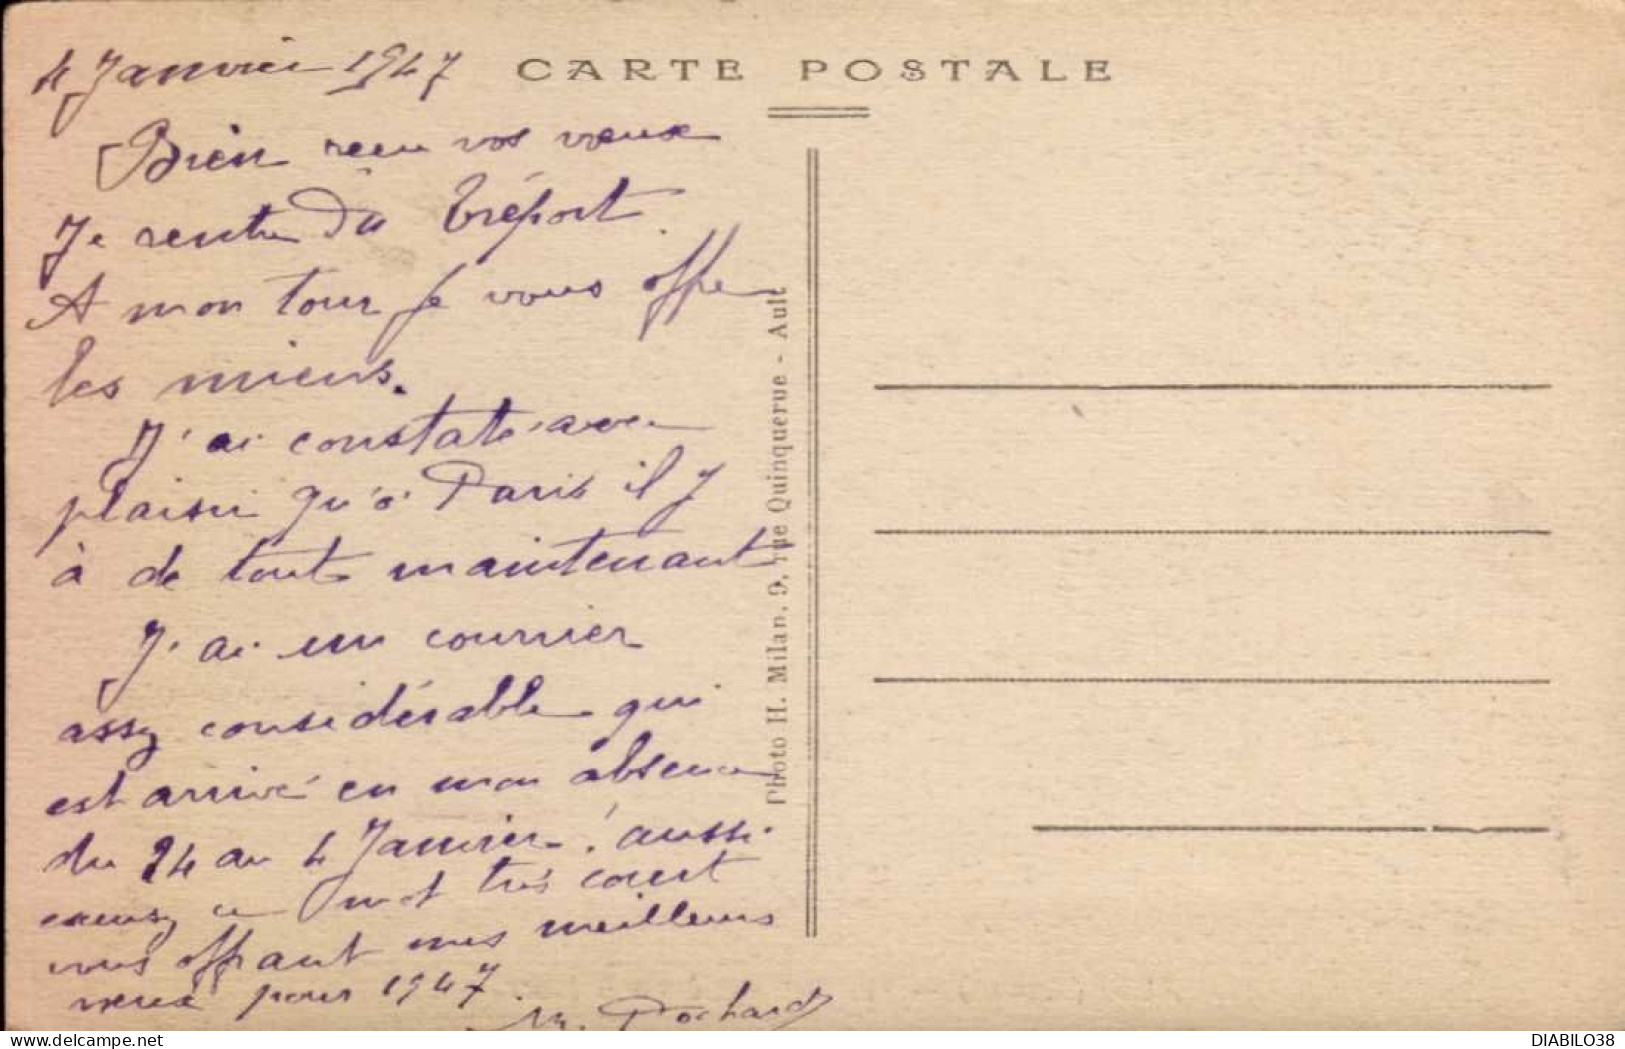 4 Janvier 1947
CARTE POSTALE
Bien reçu vos vœux
Je rentre du Tréport
A mon tour je vous offre
les miens.
J'ai constaté avec
plaisir qu'à Paris il y
à de tout maintenant
J'ai un courrier
assez considérable qui
est arrivé en mon absence
du 24 au 4 Janvier ! aussi
excusez ce mot très court
vous offrant mes meilleurs
vœux pour 1947
M. Pochard
Photo H. Milan. 9, rue Quinquerue - Ault
DIABILO38